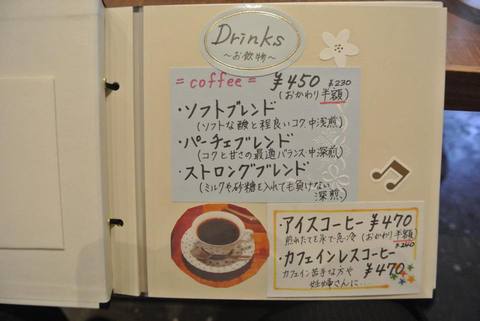 Drinks
～お飲物～
= coffee = ¥450 ¥230
(おかわり半額)
・ソフトブレンド
(ソフトな酸と程良いコク、中浅煎)
・パーチェブレンド
(コクと甘さの最適バランス・中深煎)
・ストロングブレンド
(ミルクや砂糖を入れても負けない
深煎)
・アイスコーヒー ¥470
煎れたてを氷で急冷 (おかわり半額)
¥240
・カフェインレスコーヒー
カフェイン苦手な方や ¥470
妊婦さんに…